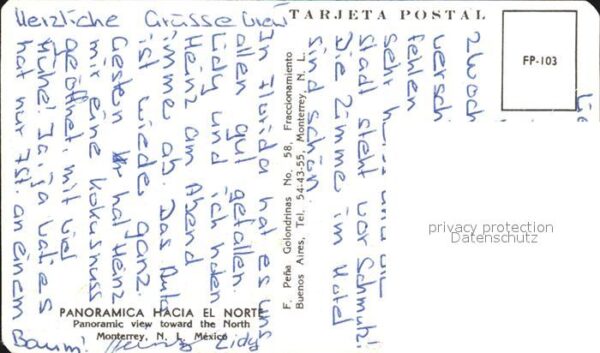 TARJETA POSTAL
FP-103
2 Woch
versch
fehlen
sehr
Stadt steht vor Schmutz!
Die Zimmer im Hotel
sind schön.
In Florida hat es uns
allen gut gefallen.
Lidy und ich holen
Heinz am Abend
immer ab. Das Auto
ist wieder ganz.
Gestern hat Heinz
mir eine Kokusnuss
geöffnet, mit viel
Mühe! Ja, ja Vati es
hat nur 7 St. an einem
Baum!
Herzliche Grüsse
Lidy
F. Peña Golondrinas No. 58, Fraccionamiento
Buenos Aires, Tel. 54-43-55, Monterrey, N. L.
PANORAMICA HACIA EL NORTE
Panoramic view toward the North
Monterrey, N. L. México
privacy protection
Datenschutz